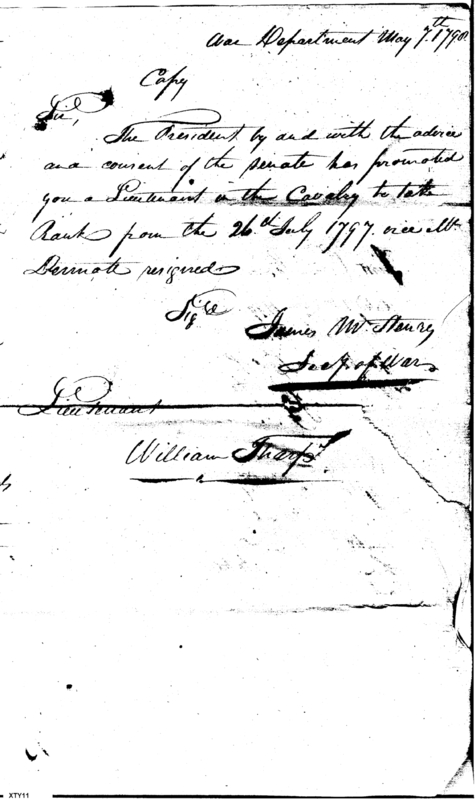 War Department May 7th. 1798
Copy
Sir,
The President by and with the advice
and consent of the Senate has promoted
you a Lieutenant in the Cavalry to take
Rank from the 26th July 1797. vice Mc
Dermote resigned
James Mc Henry
Secy. of War
Lieutenant
William Tharp
XTY11